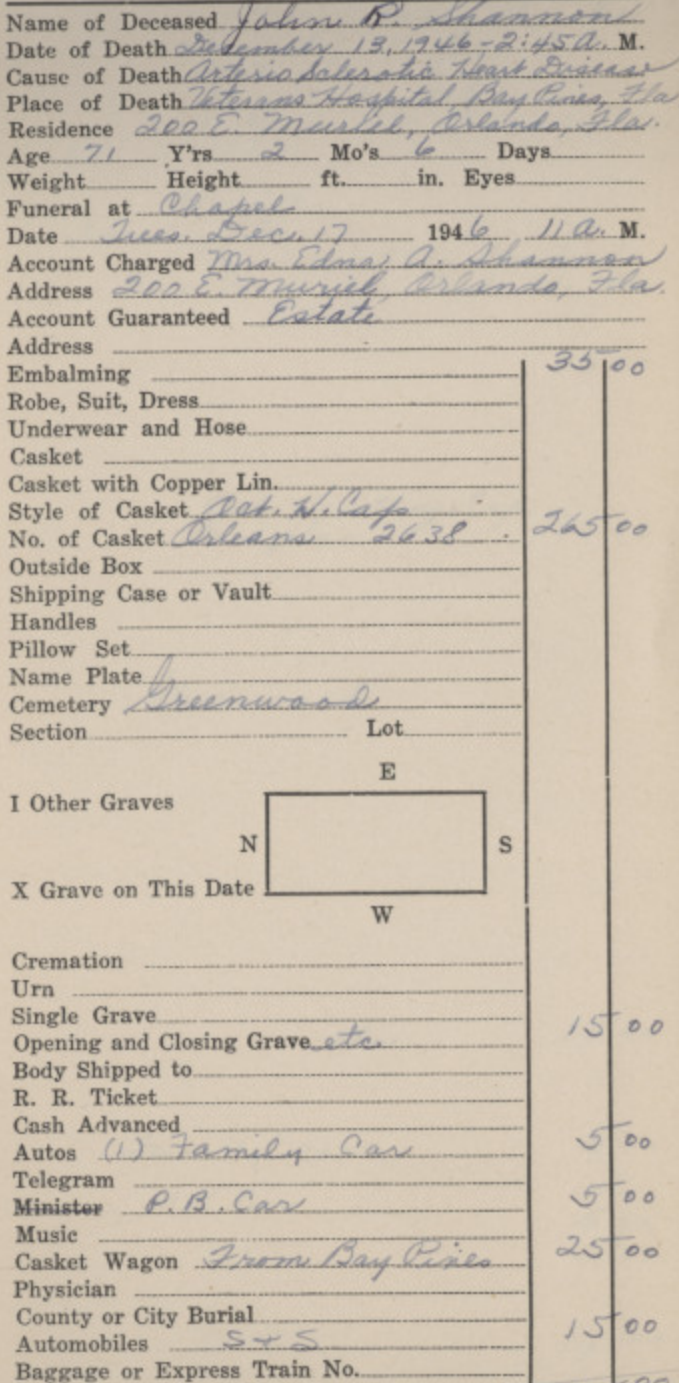 Name of Deceased John R. Shannon
Date of Death December 13, 1946-2:45 A. M.
Cause of Death Arterio Sclerotic Heart Disease
Place of Death Veterans Hospital, Bay Pines, Fla
Residence 200 E. Muriel, Orlando, Fla.
Age 71 Y'rs 2 Mo's 6 Days
Weight Height ft. in. Eyes
Funeral at Chapel
Date Tues. Dec. 17 1946 11 A. M.
Account Charged Mrs. Edna A. Shannon
Address 200 E. Muriel, Orlando, Fla.
Account Guaranteed Estate
Address
Embalming 35 00
Robe, Suit, Dress
Underwear and Hose
Casket
Casket with Copper Lin.
Style of Casket Oct. H. Cap
No. of Casket Orleans 2638 265 00
Outside Box
Shipping Case or Vault
Handles
Pillow Set
Name Plate
Cemetery Greenwood
Section Lot
E
I Other Graves
N S
X Grave on This Date
W
Cremation
Urn
Single Grave
Opening and Closing Grave etc. 15 00
Body Shipped to
R. R. Ticket
Cash Advanced
Autos (1) Family Car 5 00
Telegram
Minister P.B. Car 5 00
Music
Casket Wagon From Bay Pines 25 00
Physician
County or City Burial
Automobiles S & S 15 00
Baggage or Express Train No.